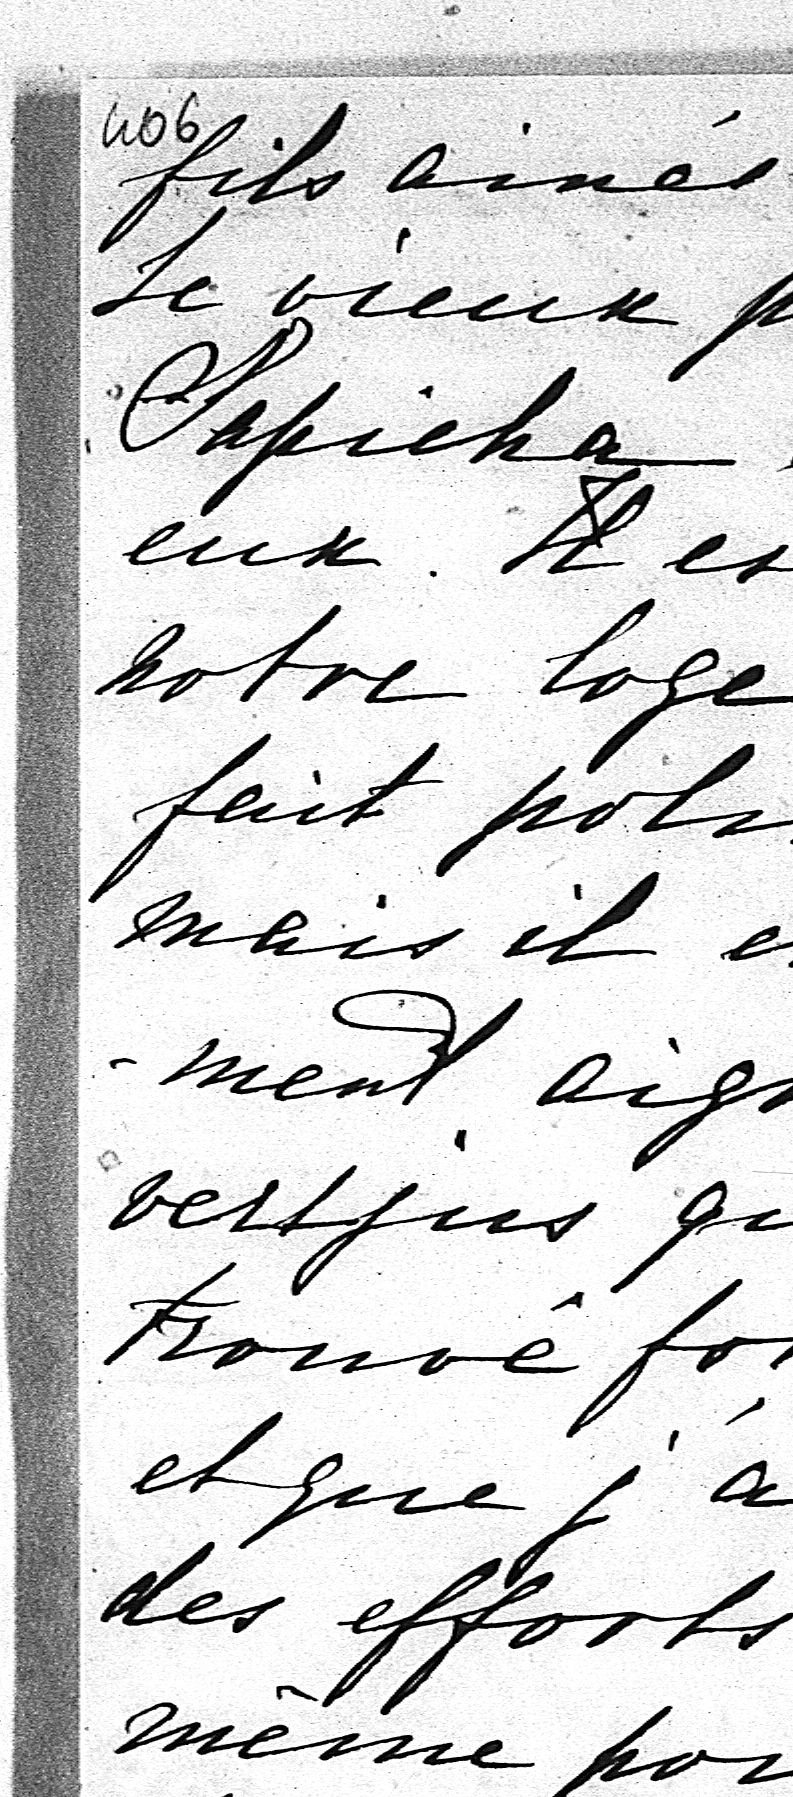 406
fils ainés
Le vieux p
Sapieha
eux. Il es
notre loge
fait polu
mais il e
-ment aig
vertjus qu
trouvé for
et que j'a
des efforts
même pou